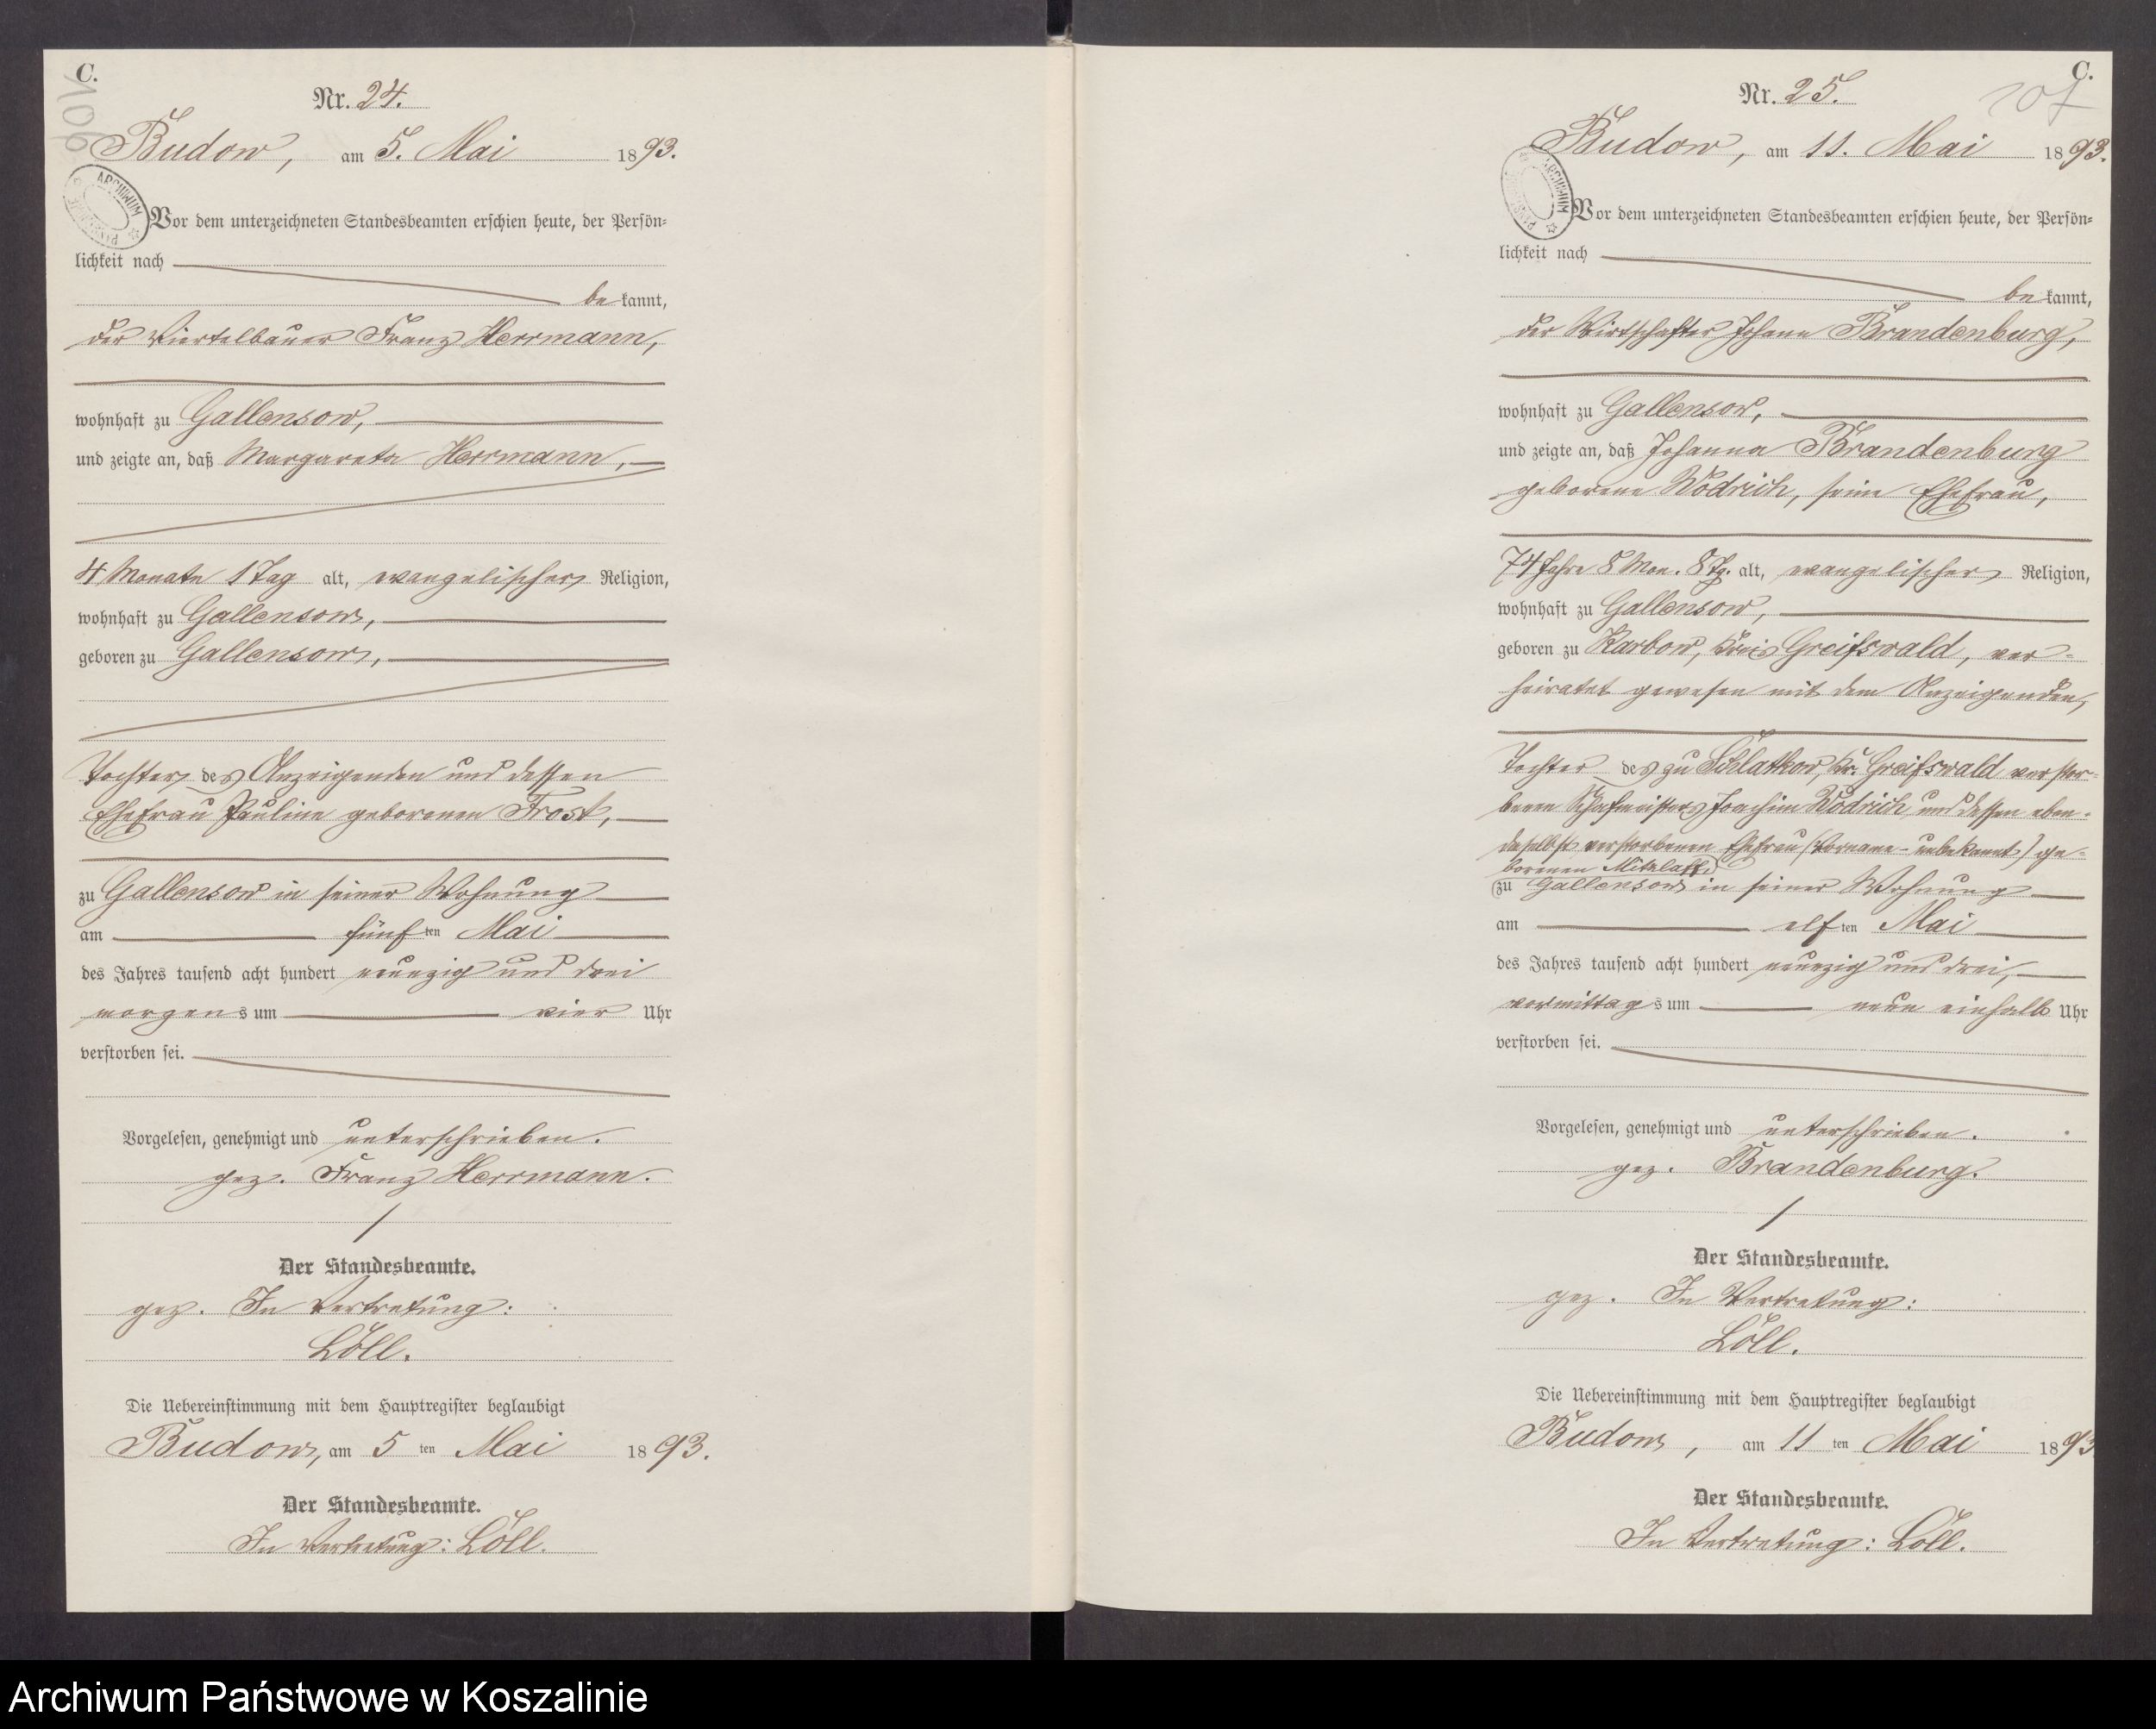 C.
106
Nr. 24.
Budow, am 5. Mai 1893.
ARCHIWUM PAŃSTWOWE
Vor dem unterzeichneten Standesbeamten erschien heute, der Persön-
lichkeit nach
be kannt,
der Viertelbauer Franz Herrmann,
wohnhaft zu Gallensow,
und zeigte an, daß Margareta Herrmann,
4 Monate 1 Tag alt, evangelischer Religion,
wohnhaft zu Gallensow,
geboren zu Gallensow,
Tochter des Anzeigenden und dessen
Ehefrau Pauline geborenen Frost,
zu Gallensow in seiner Wohnung
am fünf ten Mai
des Jahres tausend acht hundert neunzig und drei
morgens um vier Uhr
verstorben sei.
Vorgelesen, genehmigt und unterschrieben.
gez. Franz Herrmann.
Der Standesbeamte.
gez. In Vertretung:
Löll.
Die Uebereinstimmung mit dem Hauptregister beglaubigt
Budow, am 5 ten Mai 1893.
Der Standesbeamte.
In Vertretung: Löll.
C.
107
Nr. 25.
Budow, am 11. Mai 1893.
ARCHIWUM PAŃSTWOWE
Vor dem unterzeichneten Standesbeamten erschien heute, der Persön-
lichkeit nach
be kannt,
der Wirtschafter Johann Brandenburg,
wohnhaft zu Gallensow,
und zeigte an, daß Johanna Brandenburg
geborene Wodrich, seine Ehefrau,
74 Jahre 8 Mon. 8 Tg. alt, evangelischer Religion,
wohnhaft zu Gallensow,
geboren zu Karbow, Kreis Greifswald, ver-
heiratet gewesen mit dem Anzeigenden,
Tochter des zu Schlatkow, Kr. Greifswald verstor-
benen Schafmeisters Joachim Wodrich und dessen eben-
daselbst verstorbenen Ehefrau (Vorname unbekannt) ge-
borenen Mitzlaff,
zu Gallensow in seiner Wohnung
am elf ten Mai
des Jahres tausend acht hundert neunzig und drei,
vormittags um neun einhalb Uhr
verstorben sei.
Vorgelesen, genehmigt und unterschrieben.
gez. Brandenburg.
Der Standesbeamte.
gez. In Vertretung:
Löll.
Die Uebereinstimmung mit dem Hauptregister beglaubigt
Budow, am 11 ten Mai 1893
Der Standesbeamte.
In Vertretung: Löll.
Archiwum Państwowe w Koszalinie